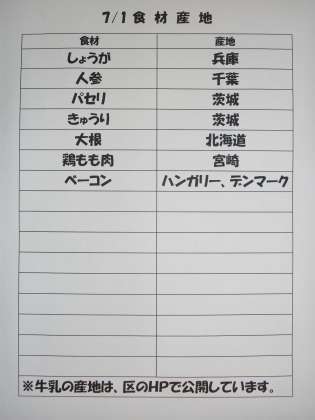 7/1食材産地
食材 産地
しょうが 兵庫
人参 千葉
パセリ 茨城
きゅうり 茨城
大根 北海道
鶏もも肉 宮崎
ベーコン ハンガリー、デンマーク
※牛乳の産地は、区のHPで公開しています。